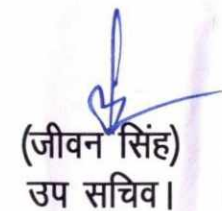 (जीवन सिंह)
उप सचिव।